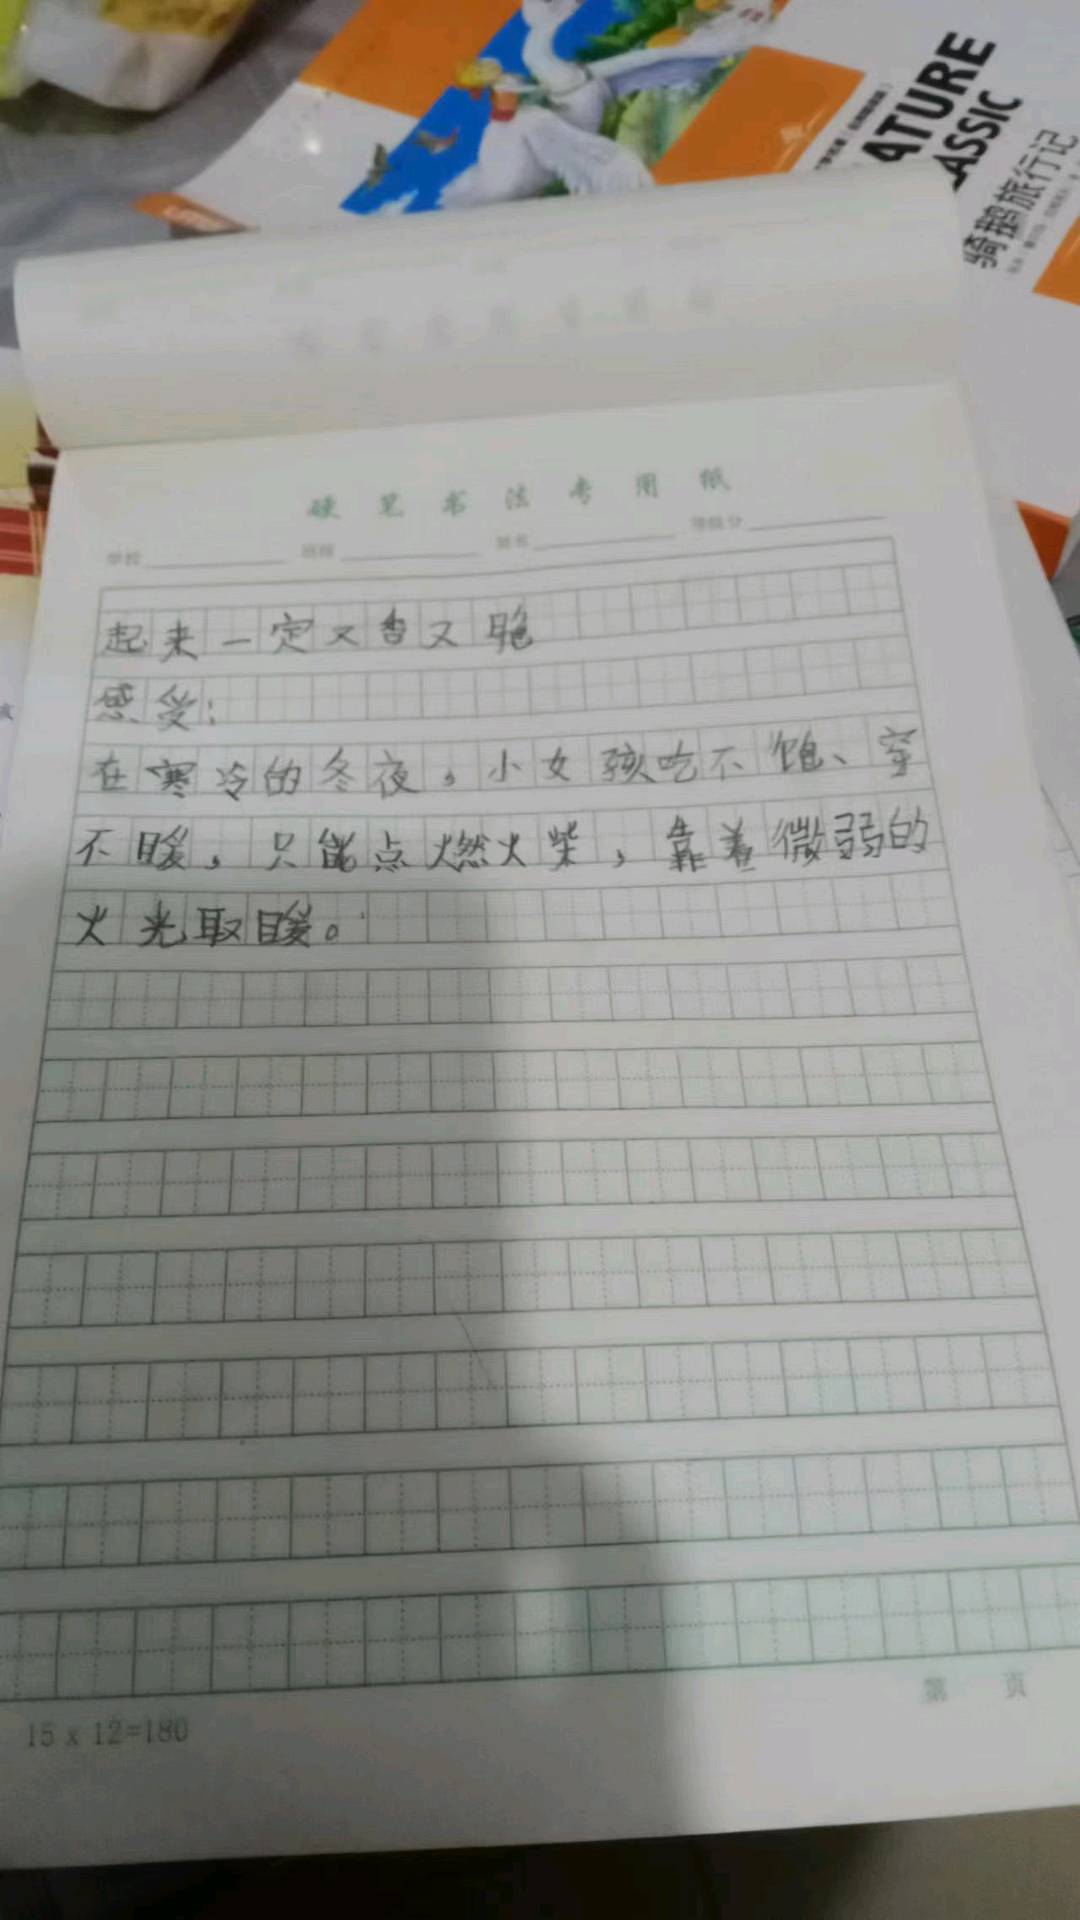 ATURE
ASSIC
骑鹅旅行记
硬笔书法专用纸
学校 班级 姓名 等级分
起来一定又香又脆
感受:
在寒冷的冬夜，小女孩吃不饱、穿
不暖，只能点燃火柴，靠着微弱的
火光取暖。
15 x 12=180
第 页